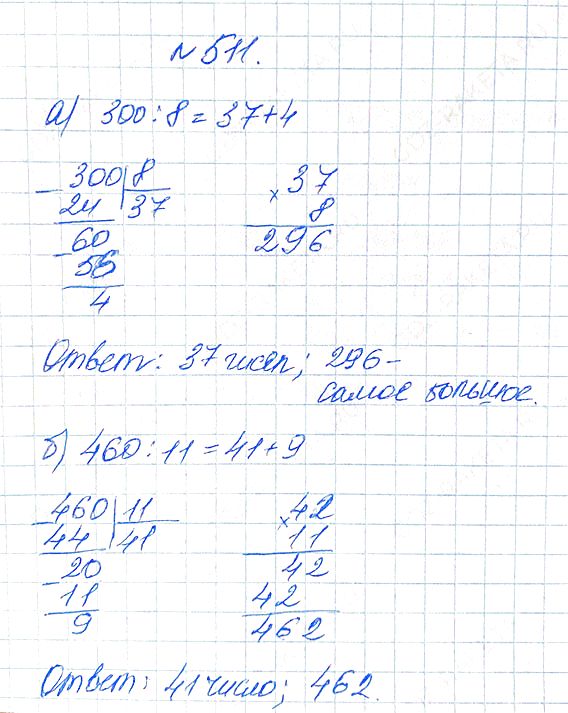 № 511.
а) 300 : 8 = 37 + 4
300 8
24 37
60
56
4
× 37
8
296
Ответ: 37 чисел; 296 –
самое большое.
б) 460 : 11 = 41 + 9
460 11
44 41
20
11
9
× 42
11
42
42
462
Ответ: 41 число; 462.